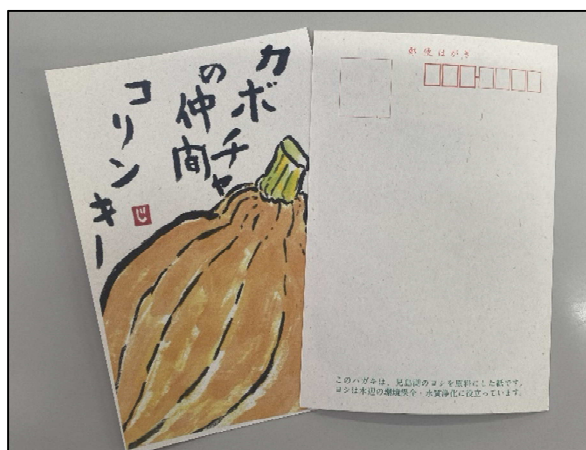 カボチャ
の仲間
コリンキー
じ
郵便はがき
このハガキは、児島湖のヨシを原料にした紙です。
ヨシは水辺の環境保全・水質浄化に役立っています。